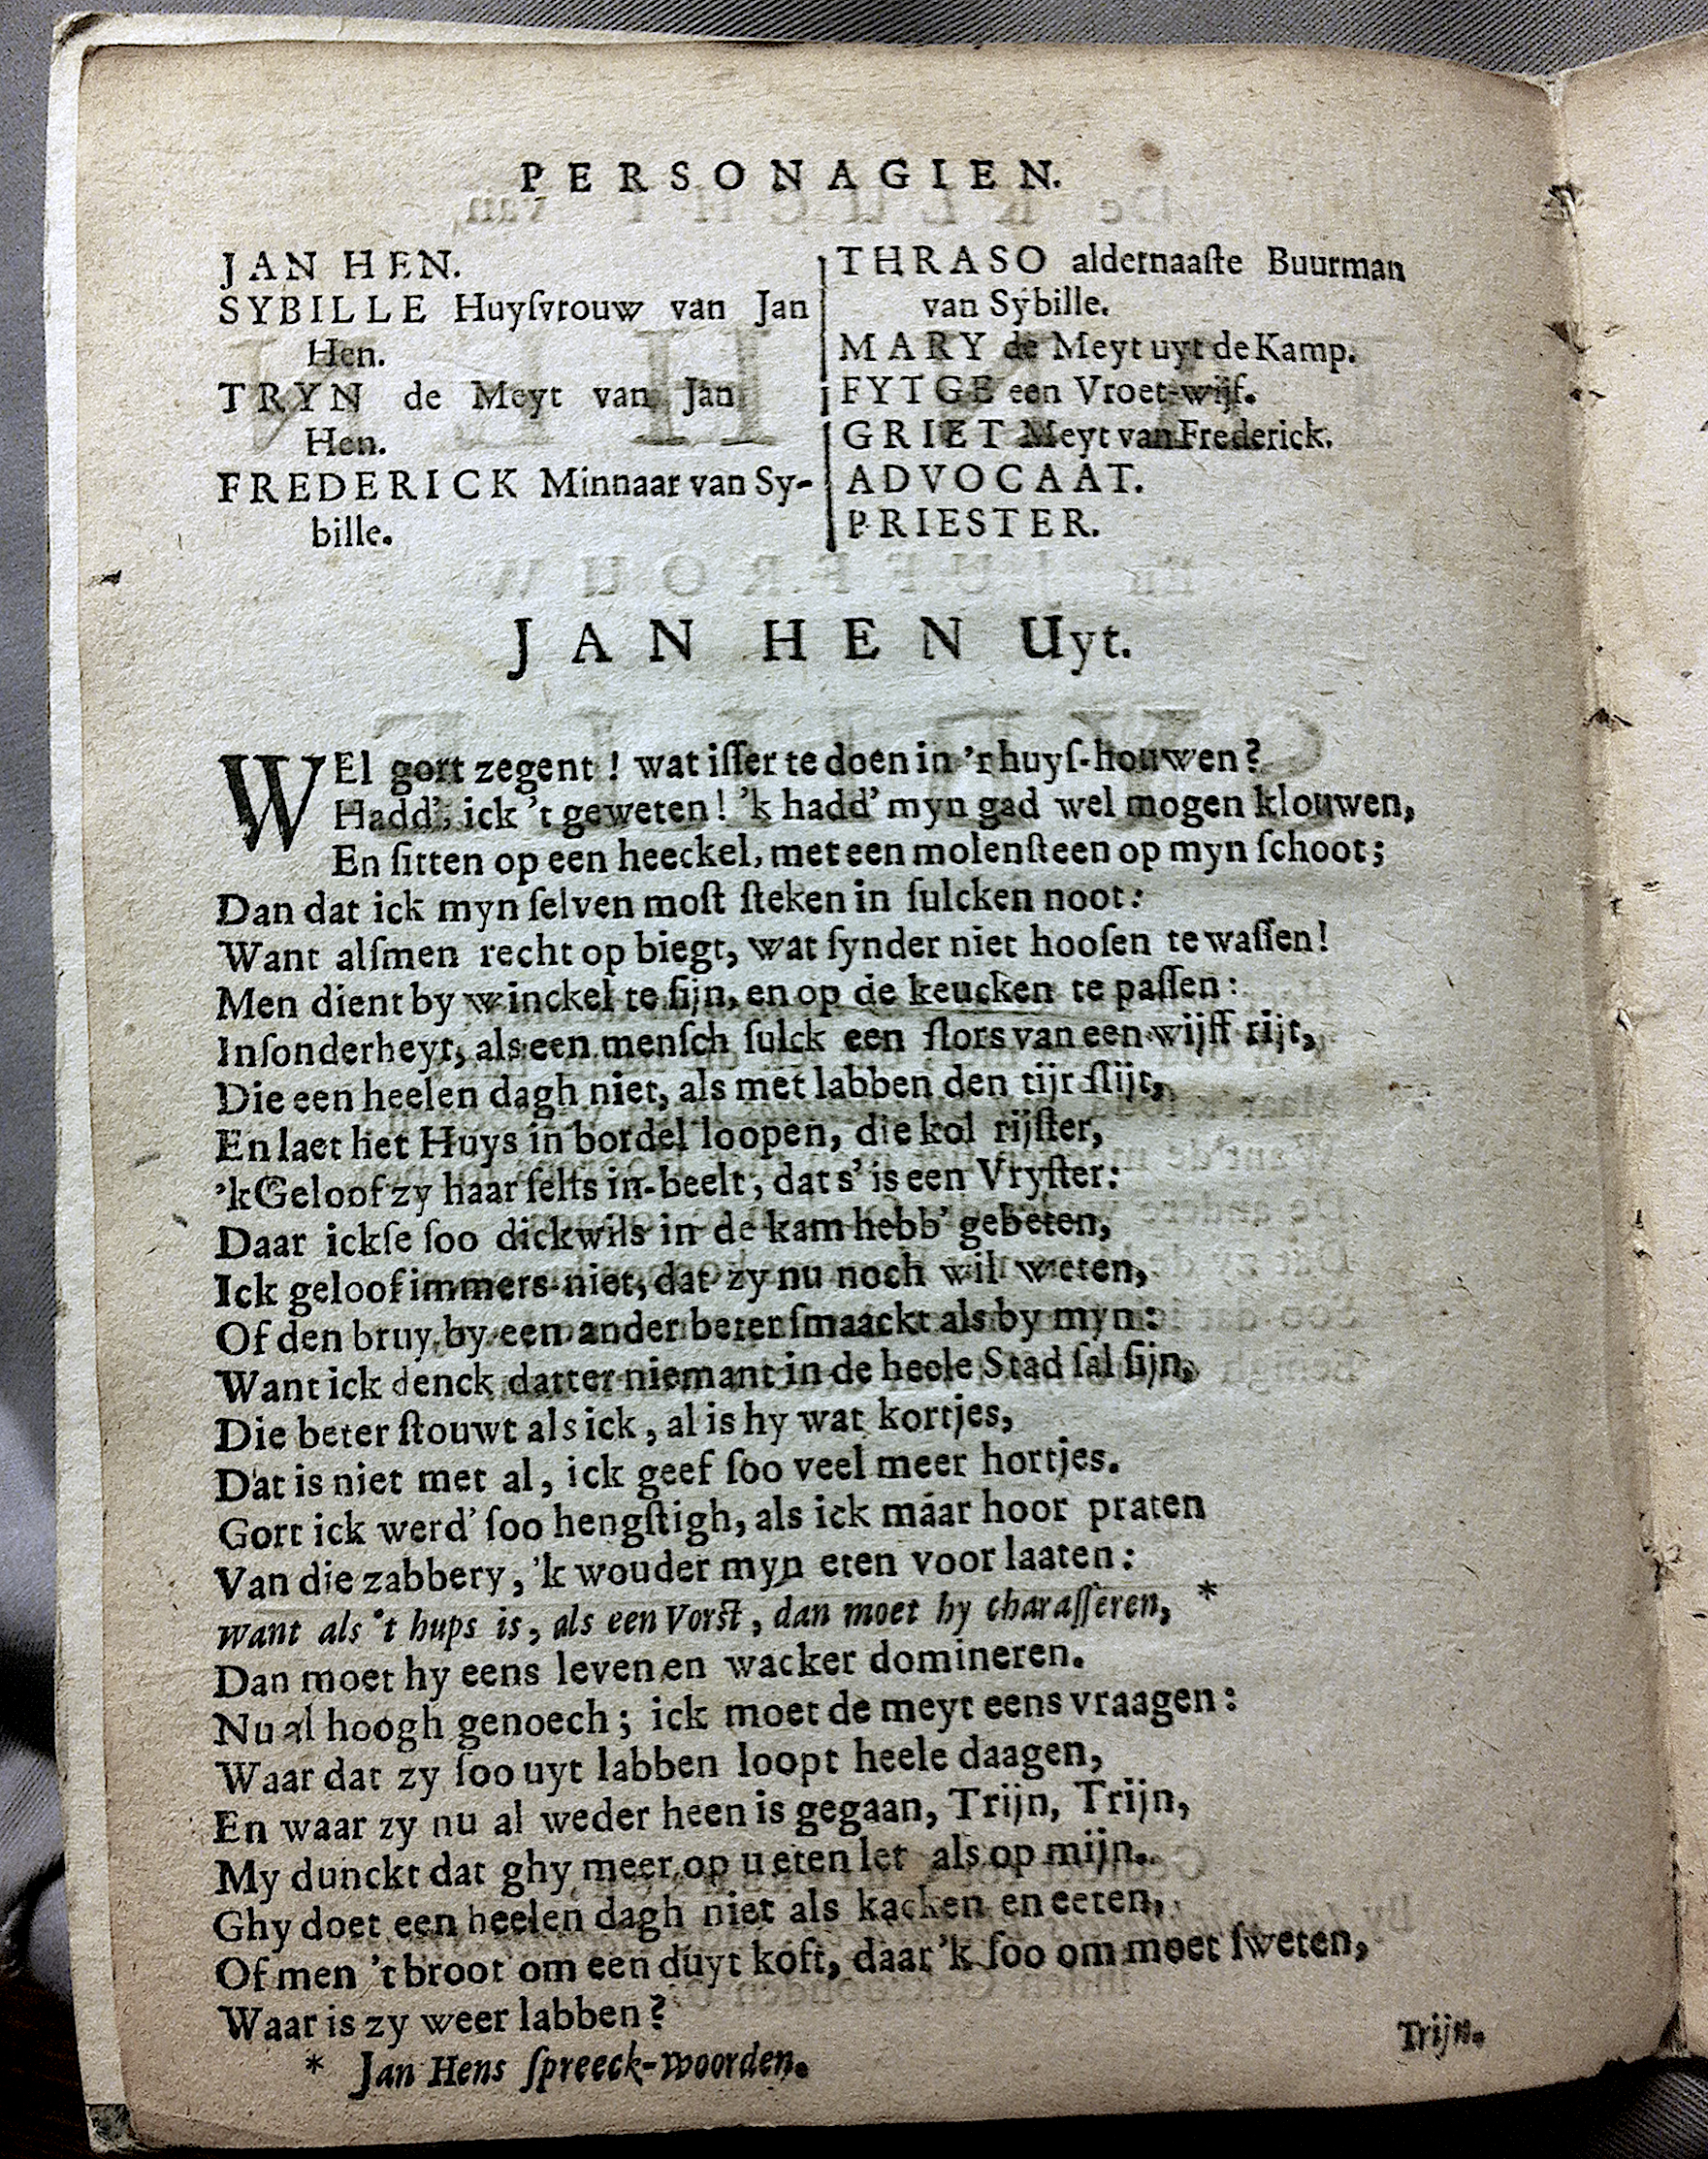 PERSONAGIEN.
JAN HEN.
SYBILLE Huyſvrouw van Jan
Hen.
TRYN de Meyt van Jan
Hen.
FREDERICK Minnaar van Sy-
bille.
THRASO aldernaaſte Buurman
van Sybille.
MARY de Meyt uyt de Kamp.
FYTGE een Vroet-wijf.
GRIET Meyt van Frederick.
ADVOCAAT.
PRIESTER.
JAN HEN Uyt.
WEl gort zegent! wat iſſer te doen in 'r huyſ-houwen?
Hadd', ick 't geweten! 'k hadd' myn gad wel mogen klouwen,
En ſitten op een heeckel, met een molenſteen op myn ſchoot;
Dan dat ick myn ſelven moſt ſteken in ſulcken noot:
Want alſmen recht op biegt, wat ſynder niet hooſen te waſſen!
Men dient by winckel te ſijn, en op de keucken te paſſen:
Inſonderheyt, als een menſch ſulck een ſlors van een wijff rijt,
Die een heelen dagh niet, als met labben den tijt ſlijt,
En laet het Huys in bordel loopen, die kol rijſter,
'k Geloof zy haar ſelfs in-beelt, dat s' is een Vryſter:
Daar ickſe ſoo dickwils in de kam hebb' gebeten,
Ick geloof immers niet, dat zy nu noch wil weten,
Of den bruy by een ander beter ſmaackt als by myn:
Want ick denck datter niemant in de heele Stad ſal ſijn,
Die beter ſtouwt als ick, al is hy wat kortjes,
Dat is niet met al, ick geef ſoo veel meer hortjes.
Gort ick werd' ſoo hengſtigh, als ick maar hoor praten
Van die zabbery, 'k wouder myn eten voor laaten:
want als 't hups is, als een Vorſt, dan moet hy charaſſeren, *
Dan moet hy eens leven en wacker domineren.
Nu al hoogh genoech; ick moet de meyt eens vraagen:
Waar dat zy ſoo uyt labben loopt heele daagen,
En waar zy nu al weder heen is gegaan, Trijn, Trijn,
My dunckt dat ghy meer op u eten let als op mijn.
Ghy doet een heelen dagh niet als kacken en eeten,
Of men 't broot om een duyt koft, daar 'k ſoo om moet ſweten,
Waar is zy weer labben?
Trijn.
* Jan Hens ſpreeck-woorden.